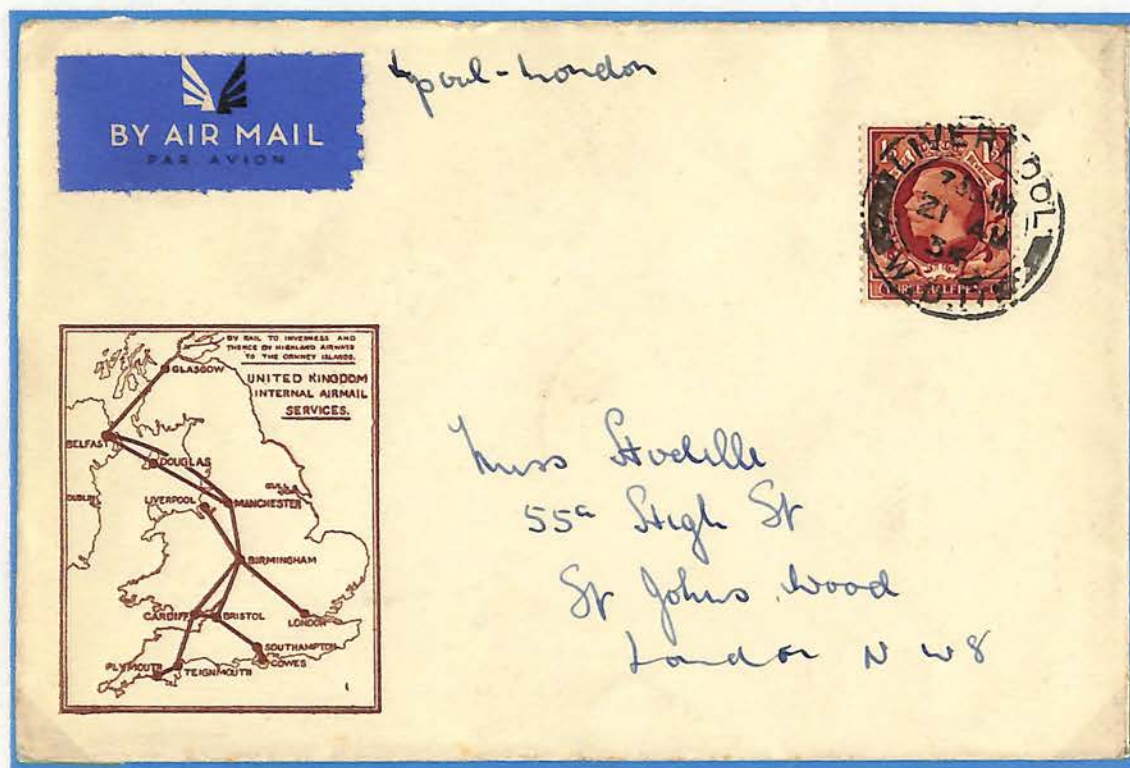 BY AIR MAIL
PAR AVION
L'pool - London
LIVERPOOL
21 AU
34
THREE HALFPENCE
BY RAIL TO INVERNESS AND
THENCE BY HIGHLAND AIRWAYS
TO THE ORKNEY ISLANDS.
UNITED KINGDOM
INTERNAL AIRMAIL
SERVICES.
GLASGOW
BELFAST
DOUGLAS
DUBLIN
LIVERPOOL
MANCHESTER
HULL
BIRMINGHAM
CARDIFF
BRISTOL
LONDON
SOUTHAMPTON
COWES
PLYMOUTH
TEIGNMOUTH
1
Miss
55a High St
St Johns Wood
London N W 8